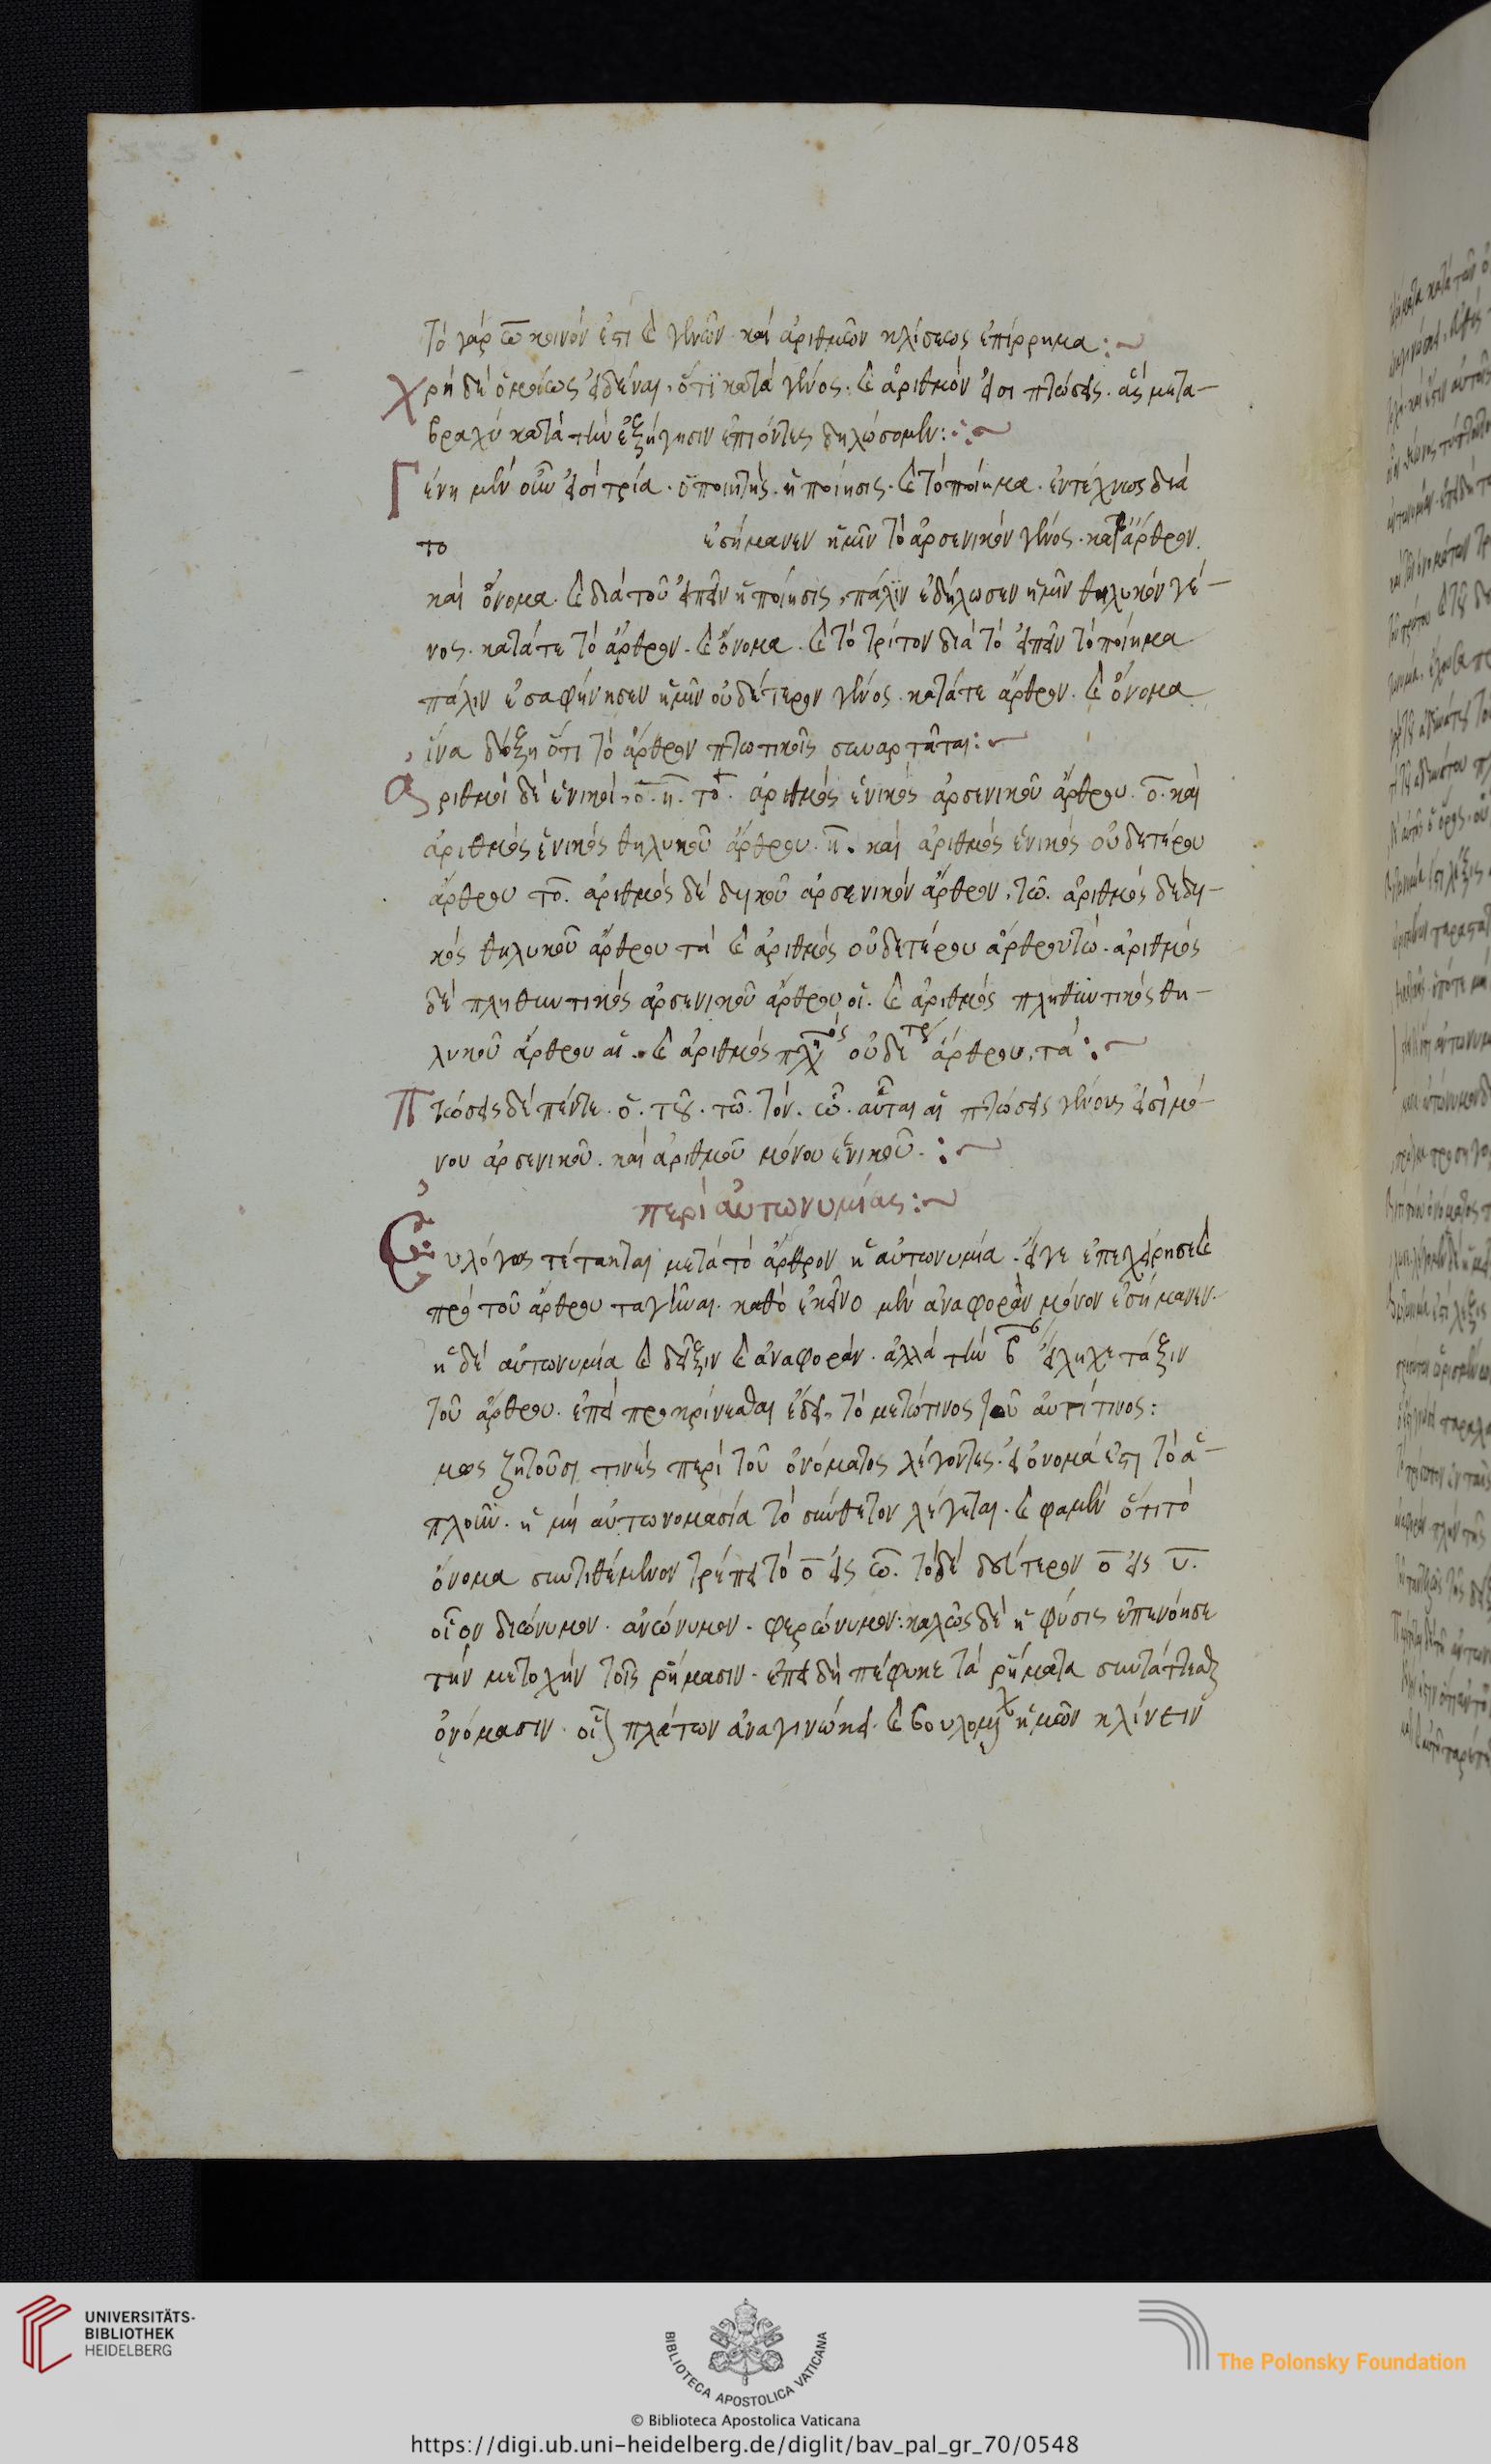 τὸ γὰρ ω κοινὸν ἐπὶ καὶ γενῶν καὶ ἀριθμῶν κλίσεως ἐπίρρημα:~
χρὴ δὲ ὁμοίως εἰδέναι, ὅτι κατὰ γένος. καὶ ἀριθμόν εἰσι πτώσεις. ἃς μετα-
βραχὺ κατὰ τὴν ἐξήγησιν ἐπιόντες δηλώσομεν:~
Γένη μὲν οὖν εἰσὶ τρία. ὁ ποιητὴς. ἡ ποίησις. καὶ τὸ ποίημα. ἐντέχνως διὰ
το ἐσήμανεν ἡμῖν τὸ ἀρσενικὸν γένος. κατ' ἄρθρον.
καὶ ὄνομα. καὶ διὰ τοῦ εἰπεῖν ἡ ποίησις, πάλιν ἐδήλωσεν ἡμῖν θηλυκὸν γέ-
νος. κατά τε τὸ ἄρθρον. καὶ ὄνομα. καὶ τὸ τρίτον διὰ τὸ εἰπεῖν τὸ ποίημα
πάλιν ἐσαφήνησεν ἡμῖν οὐδέτερον γένος. κατά τε ἄρθρον. καὶ ὄνομα
ἵνα δείξη ὅτι τὸ ἄρθρον πτωτικοῖς συναρτᾶται:~
Ἀριθμοὶ δὲ ἑνικοὶ, ὁ. ἡ. το. ἀριθμὸς ἑνικὸς ἀρσενικοῦ ἄρθρου. ὁ. καὶ
ἀριθμὸς ἑνικὸς θηλυκοῦ ἄρθρου. ἡ. καὶ ἀριθμὸς ἑνικὸς οὐδετέρου
ἄρθρου το. ἀριθμὸς δὲ δυικοῦ ἀρσενικὸν ἄρθρον, τω. ἀριθμὸς δὲ δυ-
κὸς θηλυκοῦ ἄρθρου τὰ καὶ ἀριθμὸς οὐδετέρου ἄρθρου τώ. ἀριθμὸς
δὲ πληθυντικὸς ἀρσενικοῦ ἄρθρου οἱ. καὶ ἀριθμὸς πληθυντικὸς θη-
λυκοῦ ἄρθρου αἱ. καὶ ἀριθμὸς πληθυντικὸς οὐδετέρου ἄρθρου, τά:~
Πτώσεις δὲ πέντε. ὁ. τοῦ. τῶ. τόν. ὦ. αὗται αἱ πτώσεις γένους εἰσὶ μό-
νου ἀρσενικοῦ. καὶ ἀριθμοῦ μόνου ἑνικοῦ.:~
περὶ ἀντωνυμίας:~
Εὐλόγως τέτακται μετὰ τὸ ἄρθρον ἡ ἀντωνυμία. εἴγε ἐπεχείρησε καὶ
πρὸ τοῦ ἄρθρου ταγῆναι. καθὸ ἐκεῖνο μὲν ἀναφορὰν μόνον ἐσήμανεν.
ἡ δὲ ἀντωνυμία καὶ δεῖξιν καὶ ἀναφοράν. ἀλλὰ τὴν β εἴληχε τάξιν
τοῦ ἄρθρου. ἐπεὶ προκρίνεσθαι ἔδει, τὸ μετώτινος τοῦ ἀντί τινος:
μως ζητοῦσι τινὲς περὶ τοῦ ὀνόματος λέγοντες. εἰ ὄνομά ἐστι τὸ ἁ-
πλοῦν. ἢ μὴ ἀντωνομασία τὸ σύνθετον λέγεται. καὶ φαμὲν ὅτι τὸ
ὄνομα συντιθέμενον τρέπει τὸ ο εἰς ω. τὸ δὲ δεύτερον ο εἰς υ.
οἷον διώνυμον. ἀνώνυμον. φερώνυμον: καλῶς δὲ ἡ φύσις ἐπενόησε
τὴν μετοχὴν τοῖς ῥήμασιν. ἐπειδὴ πέφυκε τὰ ῥήματα συντάττεσθαι
ὀνόμασιν. οἷον πλάτων ἀναγινώσκει. καὶ βουλομένων ἡμῶν κλίνειν
UNIVERSITÄTS-
BIBLIOTHEK
HEIDELBERG
BIBLIOTECA APOSTOLICA VATICANA
The Polonsky Foundation
© Biblioteca Apostolica Vaticana
https://digi.ub.uni-heidelberg.de/diglit/bav_pal_gr_70/0548